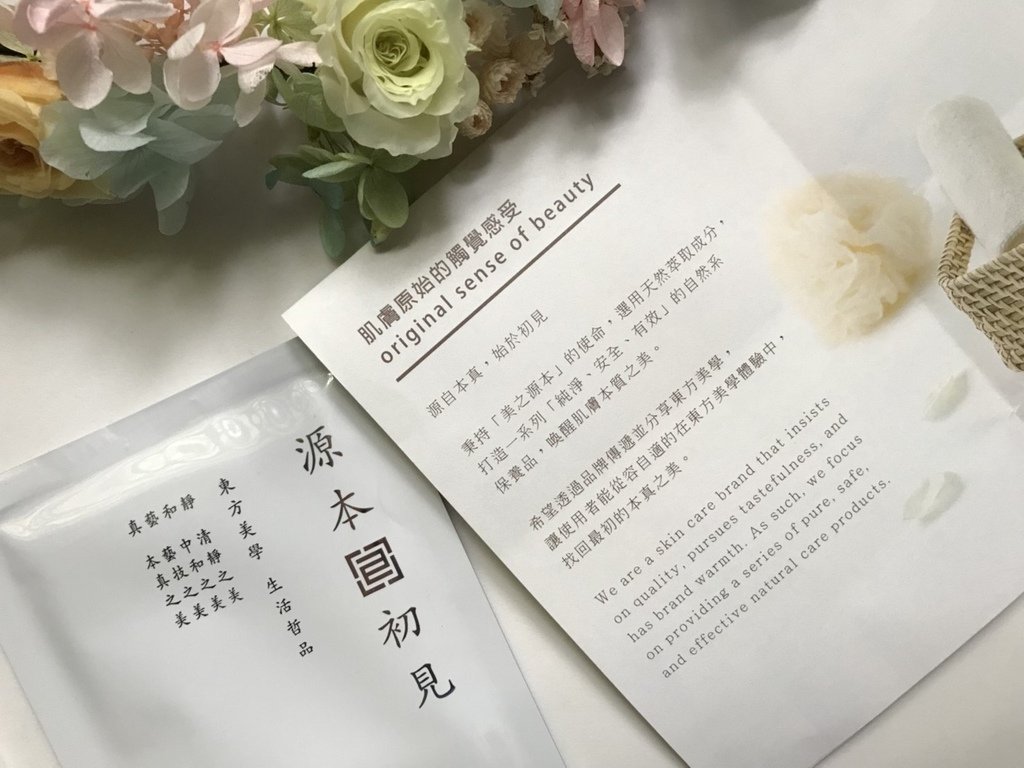 肌膚原始的觸覺感受
original sense of beauty
源自本真，始於初見
秉持「美之源本」的使命，選用天然萃取成分，
打造一系列「純淨、安全、有效」的自然系
保養品，喚醒肌膚本質之美。
希望透過品牌傳遞並分享東方美學，
讓使用者能從容自適的在東方美學體驗中，
找回最初的本真之美。
We are a skin care brand that insists
on quality, pursues tastefulness, and
has brand warmth. As such, we focus
on providing a series of pure, safe,
and effective natural care products.
源本初見
東方美學 生活哲品
靜 清靜之美
和 中和之美
藝 藝技之美
真 本真之美